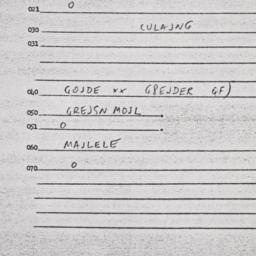 021 O
030 CULAJNG
031
040 GOJDE xx GREJDER GF)
050 GREJSN MOJL.
051 O .
060 MAJLELE
070 O